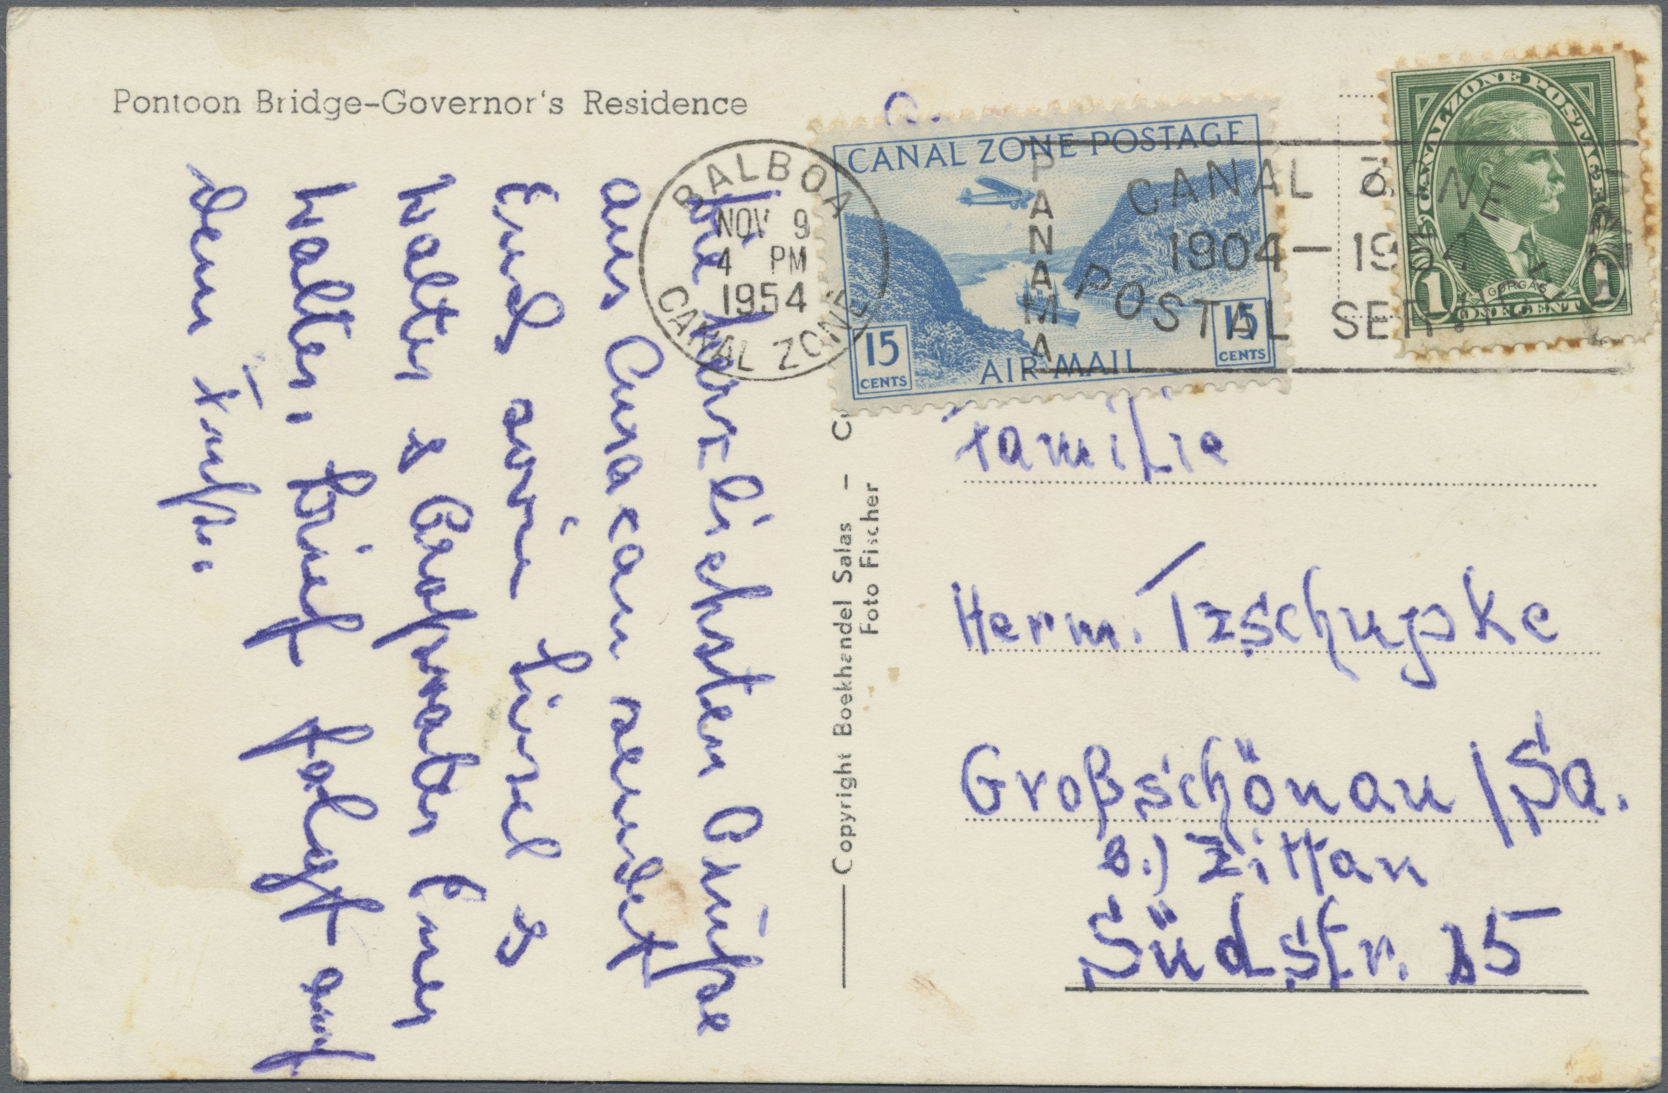 Pontoon Bridge-Governor's Residence
Die herzlichsten Grüße
aus Curacau sendet
Euch sowie Liesel &
Walter & Großvater Euer
Walter, Brief folgt auf
dem Fuße.
BALBOA
NOV 9
4 PM
1954
CANAL ZONE
CANAL ZONE POSTAGE
15
CENTS
AIR MAIL
15
CENTS
PANAMA
CANAL ZONE
1904-1954
POSTAL SERVICE
CANAL ZONE POSTAGE
1
GORGAS
1
ONE CENT
Copyright Boekhandel Salas —
Foto Fischer
Familie
Herm. Tzschupke
Großschönau /Sa.
b.) Zittau
Südstr. 15